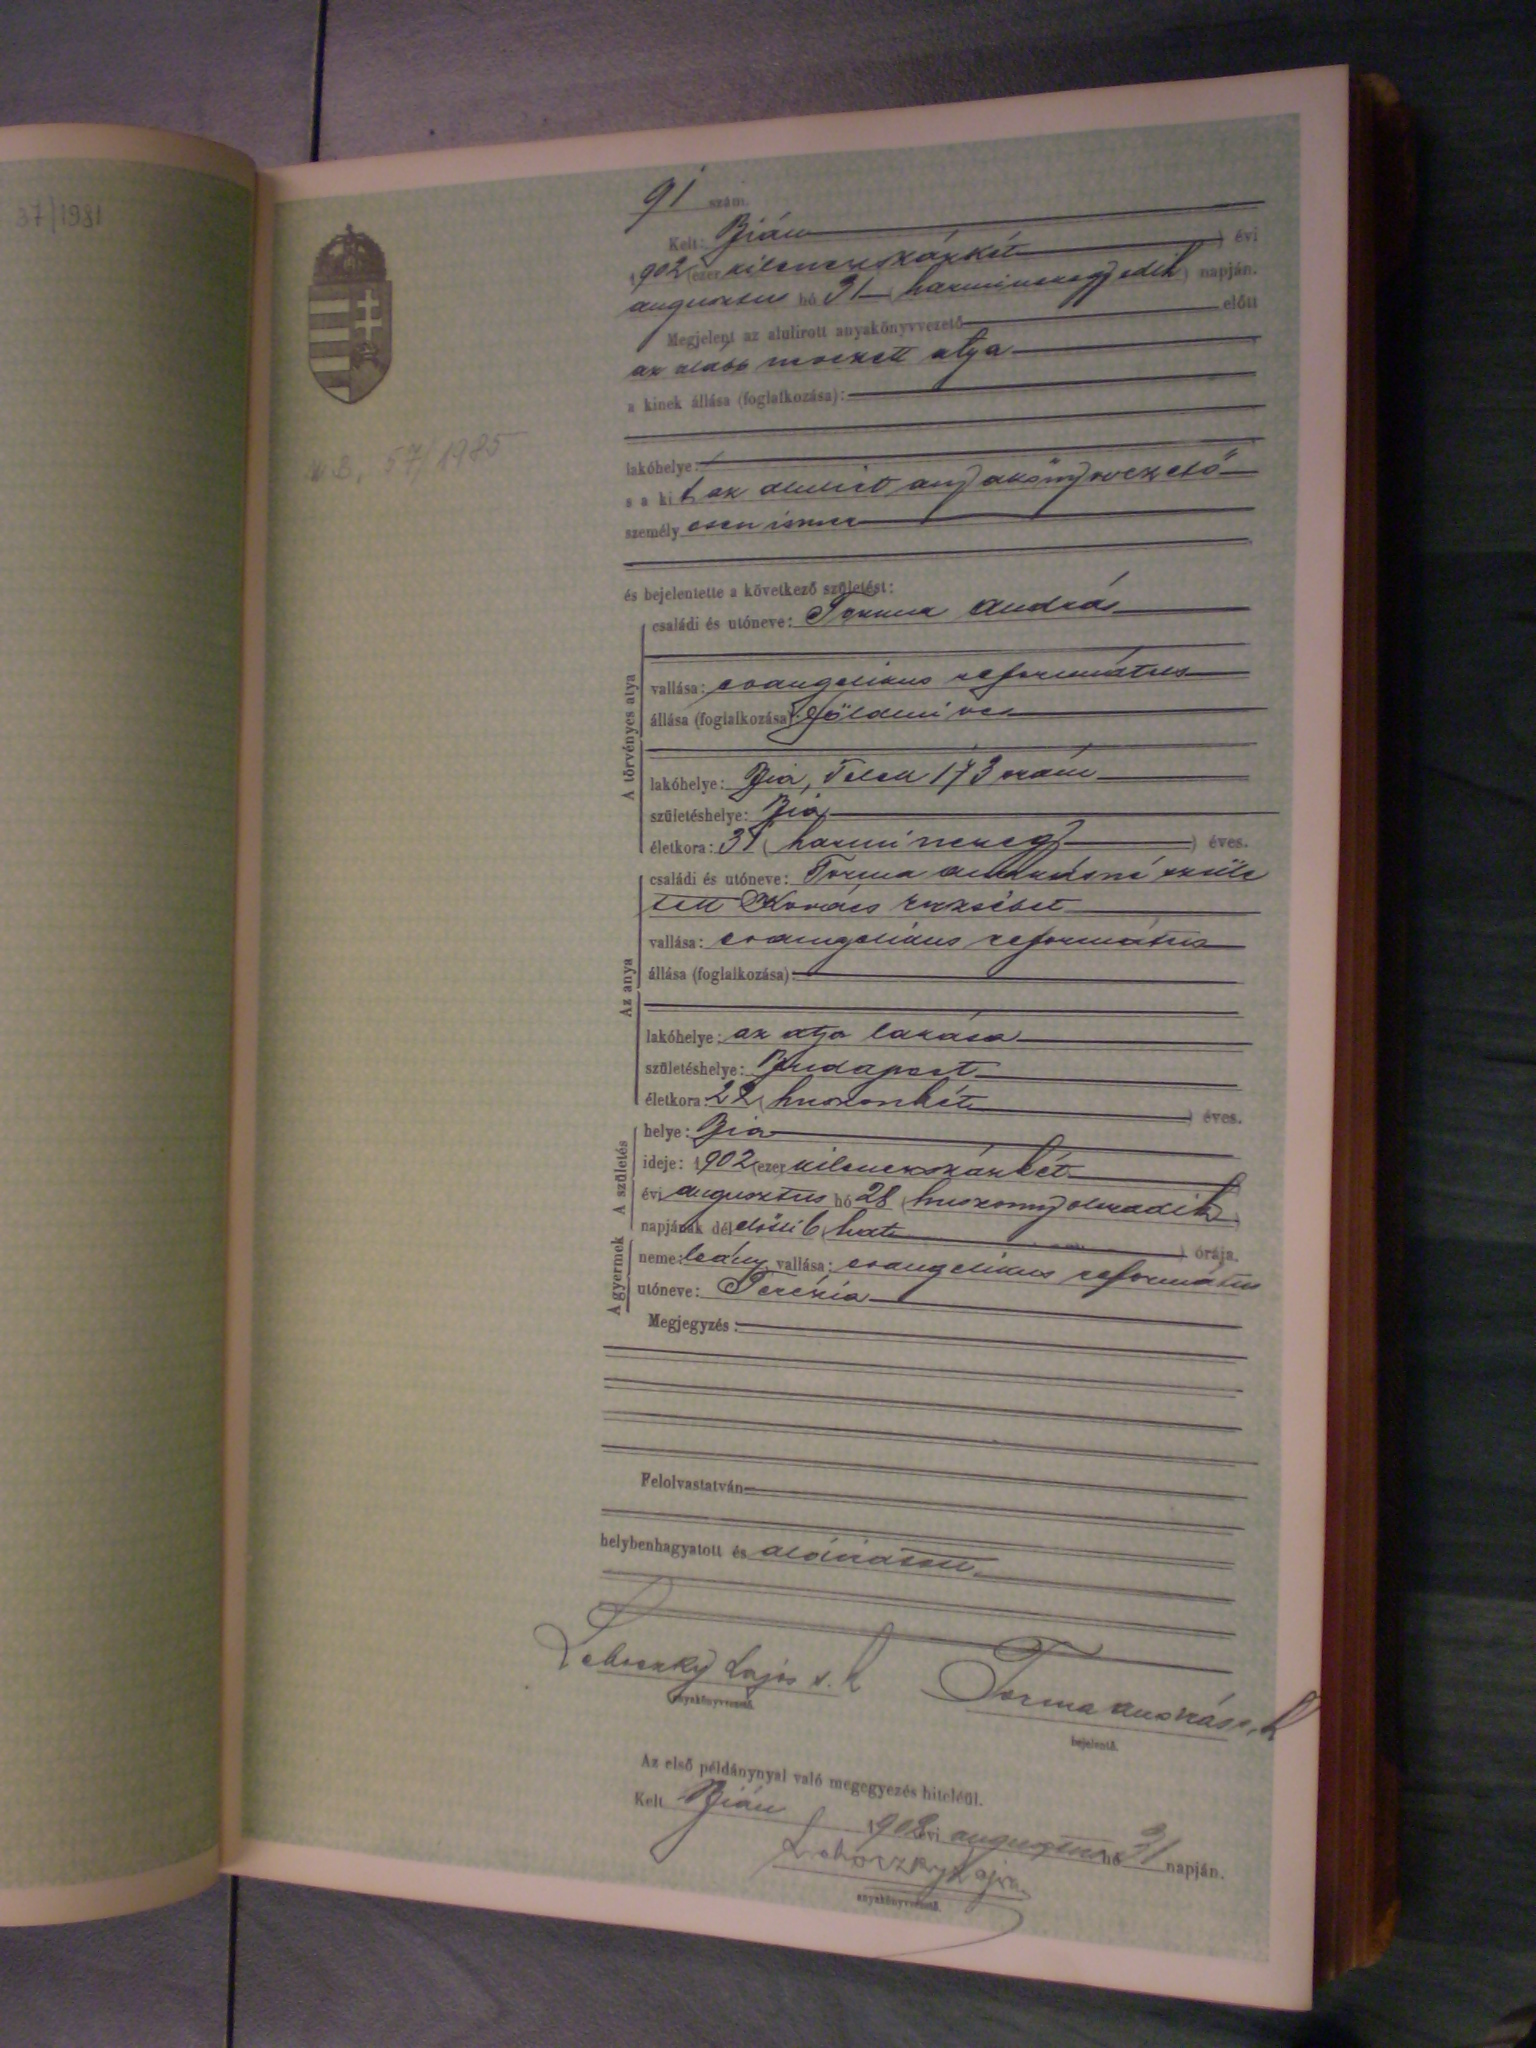 37/1981
91 szám.
Kelt: Bián
1902 (ezer kilenczszázkét ) évi
augusztus hó 31 ( harminczegyedik ) napján.
Megjelent az alulirott anyakönyvvezető előtt
az alább nevezett atya
a kinek állása (foglalkozása):
57/1985
lakóhelye:
s a kit az alulirt anyakönyvvezető
személyesen ismer
és bejelentette a következő születést:
A törvényes atya
családi és utóneve: Torma András
vallása: evangelikus református
állása (foglalkozása): földmives
lakóhelye: Bia, Telek 173 szám
születéshelye: Bia
életkora: 31 ( harminczegy ) éves.
Az anya
családi és utóneve: Torma Andrásné szüle
tett Kovács Erzsébet
vallása: evangelikus református
állása (foglalkozása):
lakóhelye: az atya lakása
születéshelye: Budapest
életkora: 22 ( huszonkét ) éves.
A születés
helye: Bia
ideje: 1902 (ezer kilenczszázkét
évi augusztus hó 28 ( huszonnyolczadik )
napjának délelőtti 6 ( hat ) órája.
A gyermek
neme: leány vallása: evangelikus református
utóneve: Terézia
Megjegyzés:
Felolvastatván
helybenhagyatott és aláiratott
Lehoczky Lajos s. k Torma András s. k
anyakönyvvezető. bejelentő.
Az első példánynyal való megegyezés hiteléül.
Kelt Bián 1902 évi augusztus hó 31 napján.
Lehoczky Lajos
anyakönyvvezető.